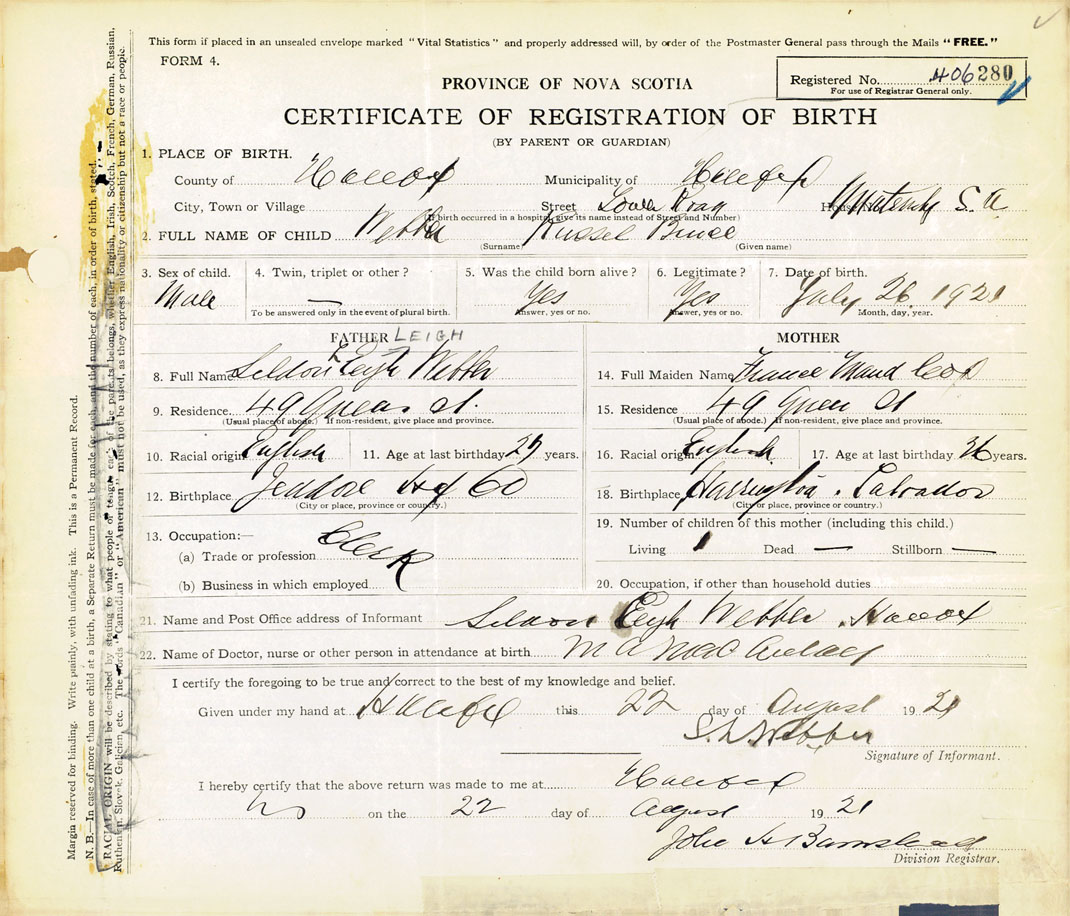 This form if placed in an unsealed envelope marked "Vital Statistics" and properly addressed will, by order of the Postmaster General pass through the Mails "FREE."
FORM 4.
Registered No. 406280
For use of Registrar General only.
PROVINCE OF NOVA SCOTIA
CERTIFICATE OF REGISTRATION OF BIRTH
(BY PARENT OR GUARDIAN)
1. PLACE OF BIRTH.
County of Halifax Municipality of Halifax
City, Town or Village Street South Maternity S.A.
(If birth occurred in a hospital, give its name instead of Street and Number)
2. FULL NAME OF CHILD Webber Russel Bruce
(Surname) (Given name)
3. Sex of child. 4. Twin, triplet or other? 5. Was the child born alive? 6. Legitimate? 7. Date of birth.
Male — Yes Yes July 26 1921
To be answered only in the event of plural birth. Answer, yes or no. Answer, yes or no. Month, day, year.
FATHER LEIGH MOTHER
8. Full Name Seldon Leigh Webber 14. Full Maiden Name Maud
9. Residence 49 Queen St. 15. Residence 49 Queen St
(Usual place of abode.) If non-resident, give place and province. (Usual place of abode.) If non-resident, give place and province.
10. Racial origin English 11. Age at last birthday years. 16. Racial origin English 17. Age at last birthday years.
12. Birthplace Jeddore Hfx Co 18. Birthplace Harrington, Labrador
(City or place, province or country.) (City or place, province or country.)
13. Occupation:— 19. Number of children of this mother (including this child.)
(a) Trade or profession Clerk Living 1 Dead — Stillborn —
(b) Business in which employed 20. Occupation, if other than household duties
21. Name and Post Office address of Informant Seldon Leigh Webber, Halifax
22. Name of Doctor, nurse or other person in attendance at birth M A MacAulay
I certify the foregoing to be true and correct to the best of my knowledge and belief.
Given under my hand at Halifax this 22 day of August 1921
S. L. Webber
Signature of Informant.
I hereby certify that the above return was made to me at Halifax
on the 22 day of August 1921
John H Barnstead
Division Registrar.
Margin reserved for binding. Write plainly, with unfading ink. This is a Permanent Record.
N. B.—In case of more than one child at a birth, a Separate Return must be made for each, and the number of each, in order of birth, stated.
RACIAL ORIGIN will be described by stating to what people or tongue each of the parents belongs, whether English, Irish, Scotch, French, German, Russian,
Ruthenian, Slovak, Galicien, etc. The words "Canadian" or "American" must not be used, as they express nationality or citizenship but not a race or people.